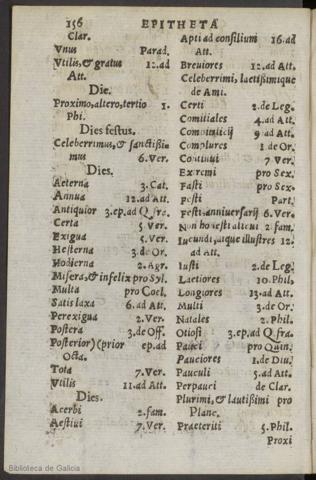 156 EPITHETA
Clar.
Vnus Parad.
Vtilis, & gratus 12.ad
Att.
Die.
Proximo, altero, tertio 1.
Phi.
Dies festus.
Celeberrimus, & sanctissi-
mus 6.Ver.
Dies.
Aeterna 3.Cat.
Annua 12.ad Att.
Antiquior 3.ep.ad Q.fra.
Certa 5.Ver.
Exigua 5.Ver.
Hesterna 3.de Or.
Hodierna 2.Agr.
Misera, & infelix pro Syl.
Multa pro Coel.
Satis laxa 6.ad Att.
Perexigua 2.Ver.
Postera 3.de Off.
Posterior)(prior ep.ad
Octa.
Tota 7.Ver.
Vtilis 11.ad Att.
Dies.
Acerbi 2.fam.
Aestiui 7.Ver.
Apti ad consilium 16.ad
Att.
Breuiores 12.ad Att.
Celeberrimi, laetissimique
de Ami.
Certi 2.de Leg.
Comitiales 4.ad Att.
Compitalicij 9.ad Att.
Complures 1.de Or.
Continui 7 Ver.
Extremi pro Sex.
Fasti pro Sex.
Festi Part.
Festi, anniuersarij 6.Ver.
Non honesti alicui 2.fam.
Iucundi, atque illustres 12.
ad Att.
Iusti 2.de Leg.
Laetiores 10.Phil.
Longiores 13.ad Att.
Multi 3.de Or.
Natales 2.Phil.
Otiosi 3.ep.ad Q.fra.
Pauci pro Quin.
Pauciores 1.de Diu.
Pauculi 5.ad Att.
Perpauci de Clar.
Plurimi, & lautissimi pro
Planc.
Praeteriti 5.Phil.
Proxi
Biblioteca de Galicia